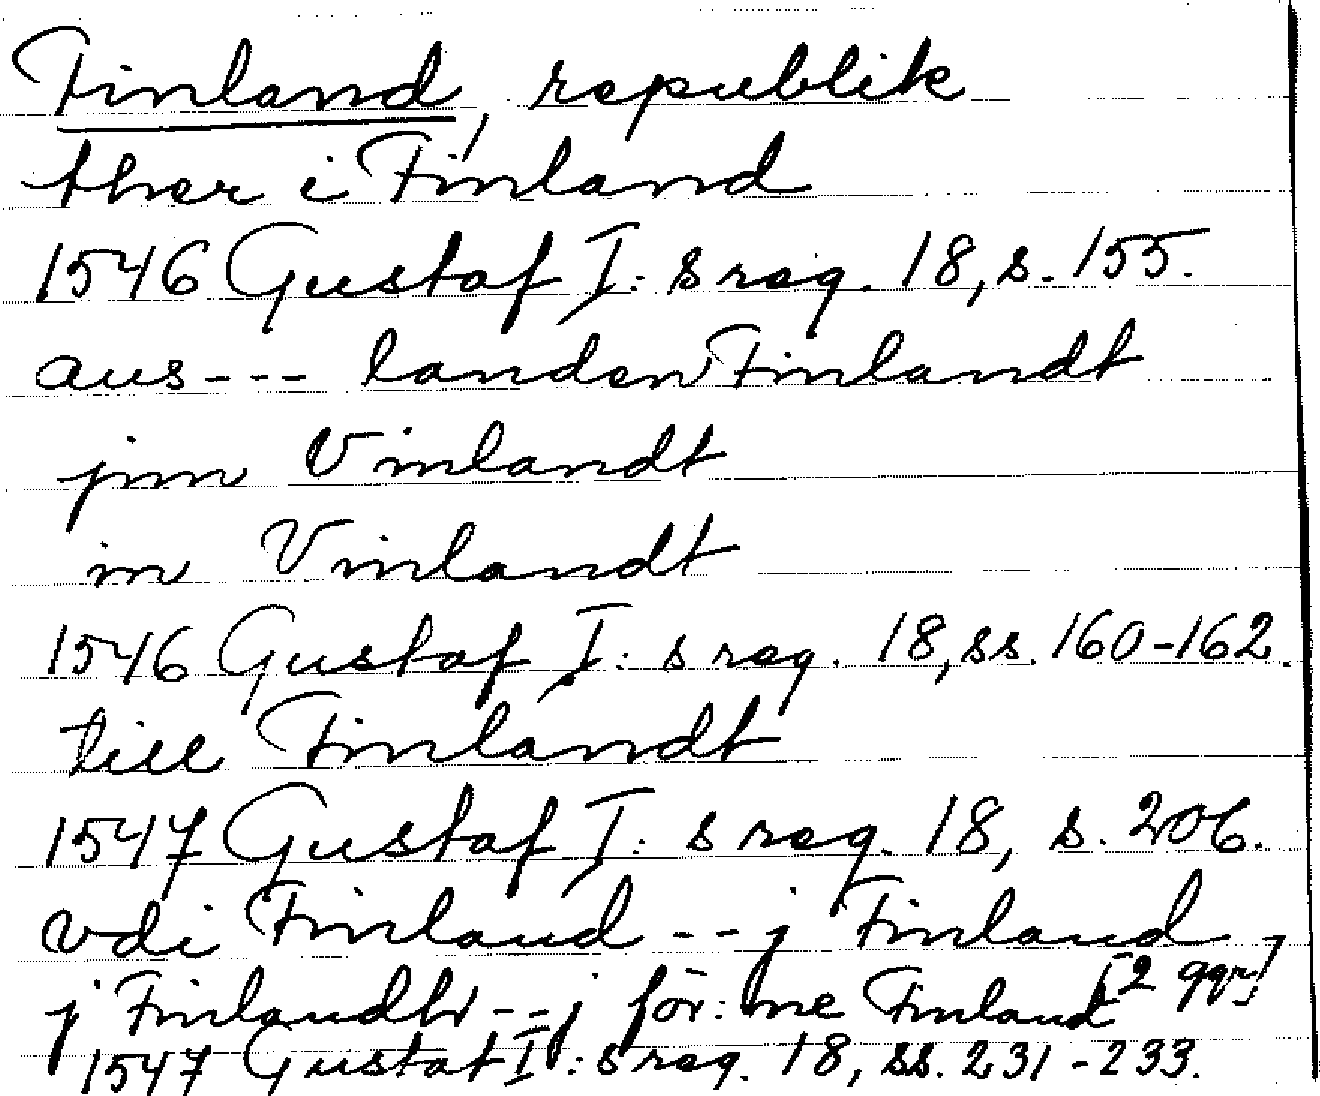 Finland, republik
ther i Finland
1546 Gustaf I: s reg. 18, s. 155.
aus --- landen Finlandt
jnn Vinlandt
in Vinlandt
1546 Gustaf I: s reg. 18, ss. 160-162.
till Finlandt
1547 Gustaf I: s reg. 18, s. 206.
vdi Finland -- j Finland
j Finlandh -- j för:ne Finland [2 ggr]
1547 Gustaf I: s reg. 18, ss. 231-233.